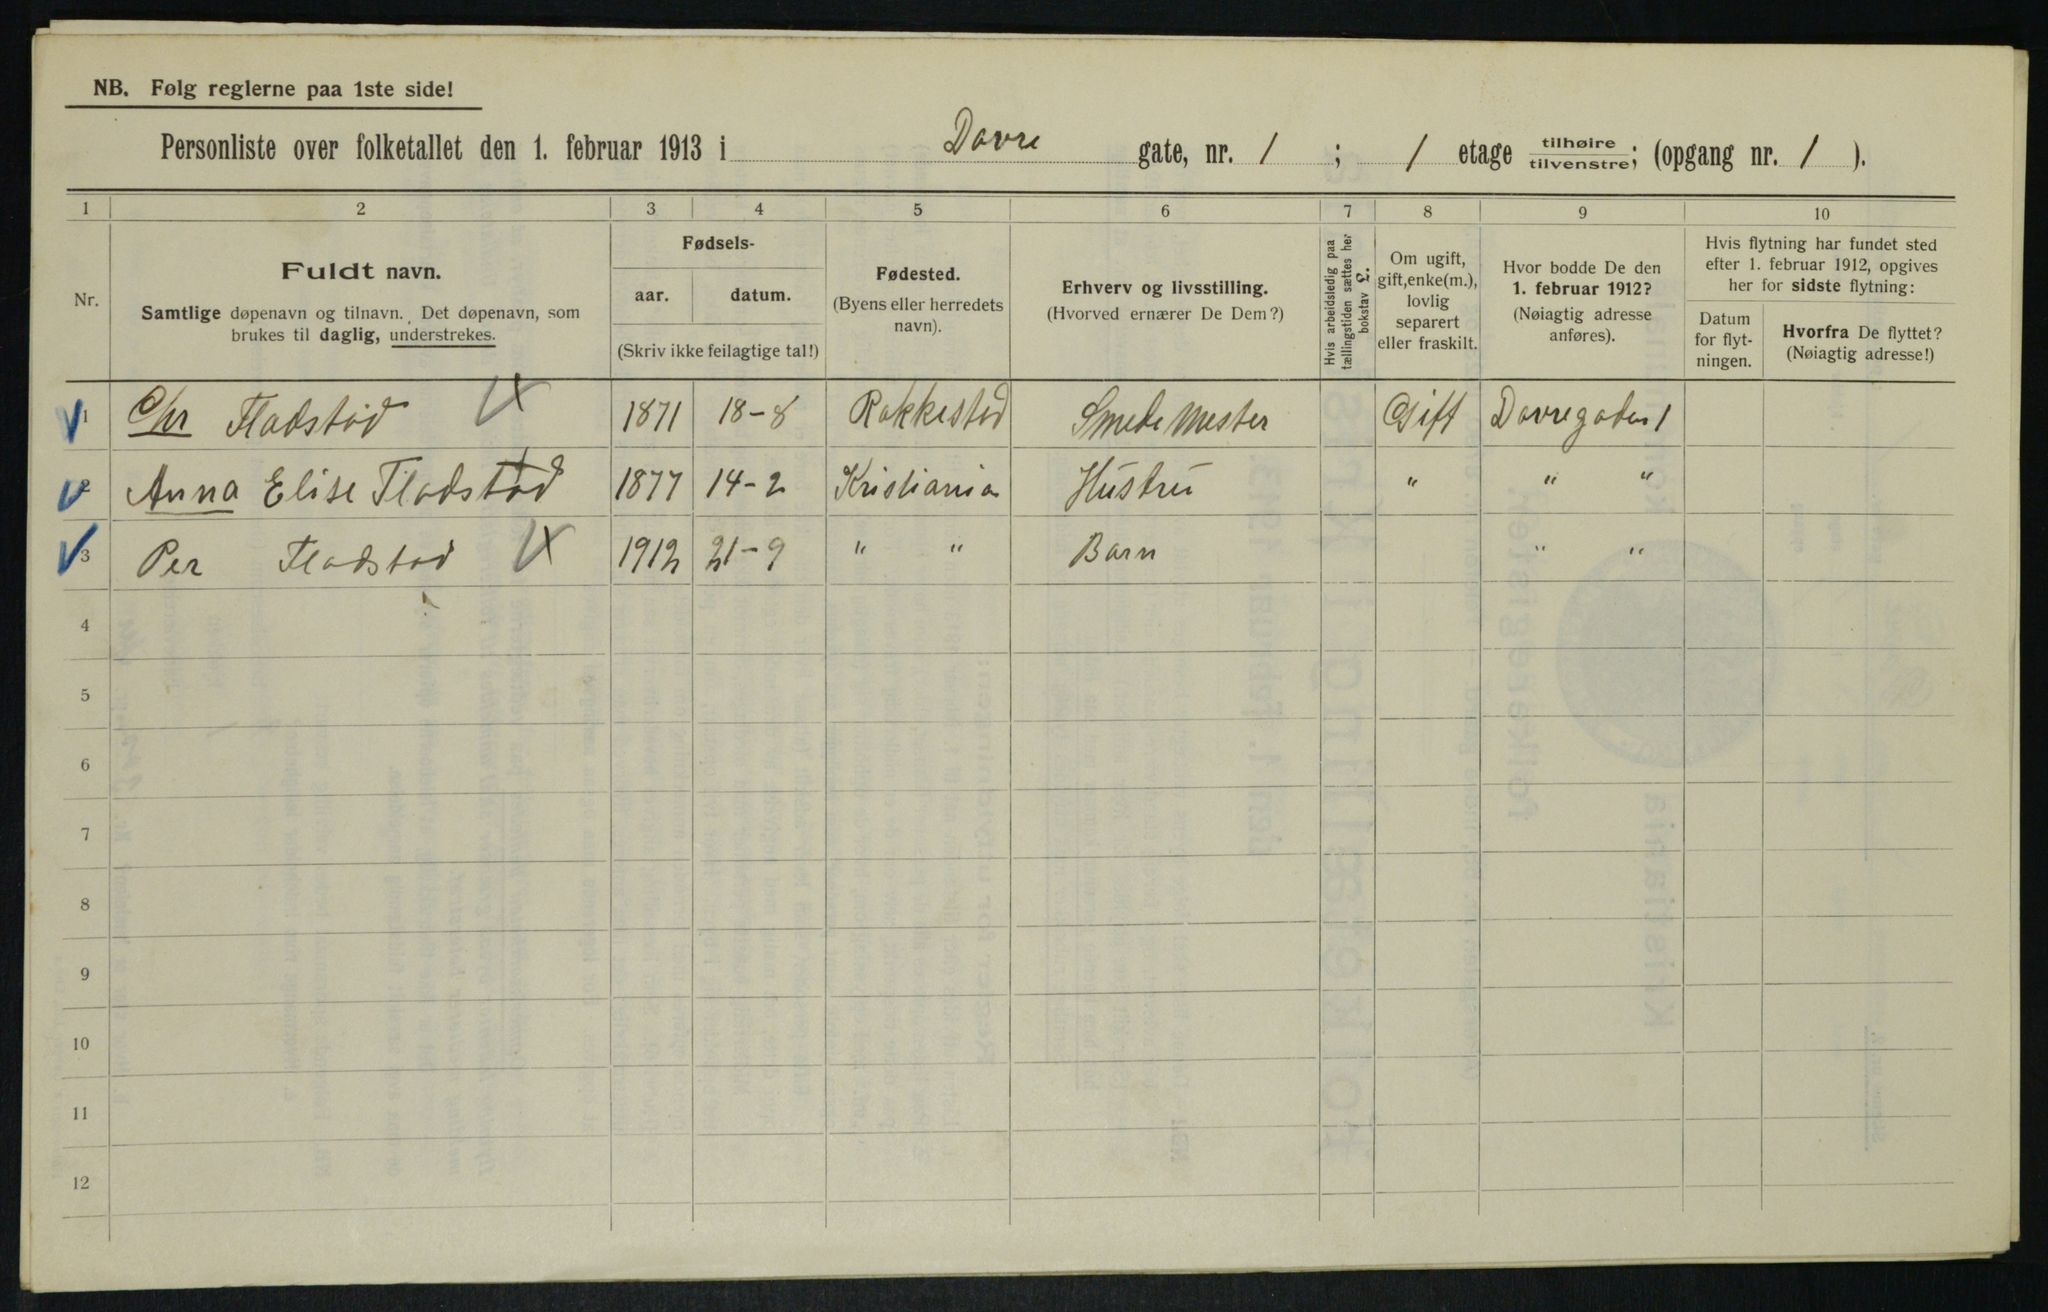 NB. Følg reglerne paa 1ste side!
Personliste over folketallet den 1. februar 1913 i Dovre gate, nr. 1 ; 1 etage tilhøire/tilvenstre; (opgang nr. 1 ).
1 2 3 4 5 6 7 8 9 10
Nr.
Fuldt navn.
Samtlige døpenavn og tilnavn. Det døpenavn, som
brukes til daglig, understrekes.
Fødsels-
aar. datum.
(Skriv ikke feilagtige tal!)
Fødested.
(Byens eller herredets
navn).
Erhverv og livsstilling.
(Hvorved ernærer De Dem?)
Hvis arbeidsledig paa
tællingstiden sættes her
bokstav L.
Om ugift,
gift, enke(m.),
lovlig
separert
eller fraskilt.
Hvor bodde De den
1. februar 1912?
(Nøiagtig adresse
anføres).
Hvis flytning har fundet sted
efter 1. februar 1912, opgives
her for sidste flytning:
Datum
for flyt-
ningen.
Hvorfra De flyttet?
(Nøiagtig adresse!)
1 Chr Fladstød 1871 18-8 Rakkestad Smede Mester Gift Dovregaden 1
2 Anna Elise Fladstød 1877 14-2 Kristiania Hustru " " "
3 Per Fladstad 1912 21-9 " " Barn " "
4
5
6
7
8
9
10
11
12